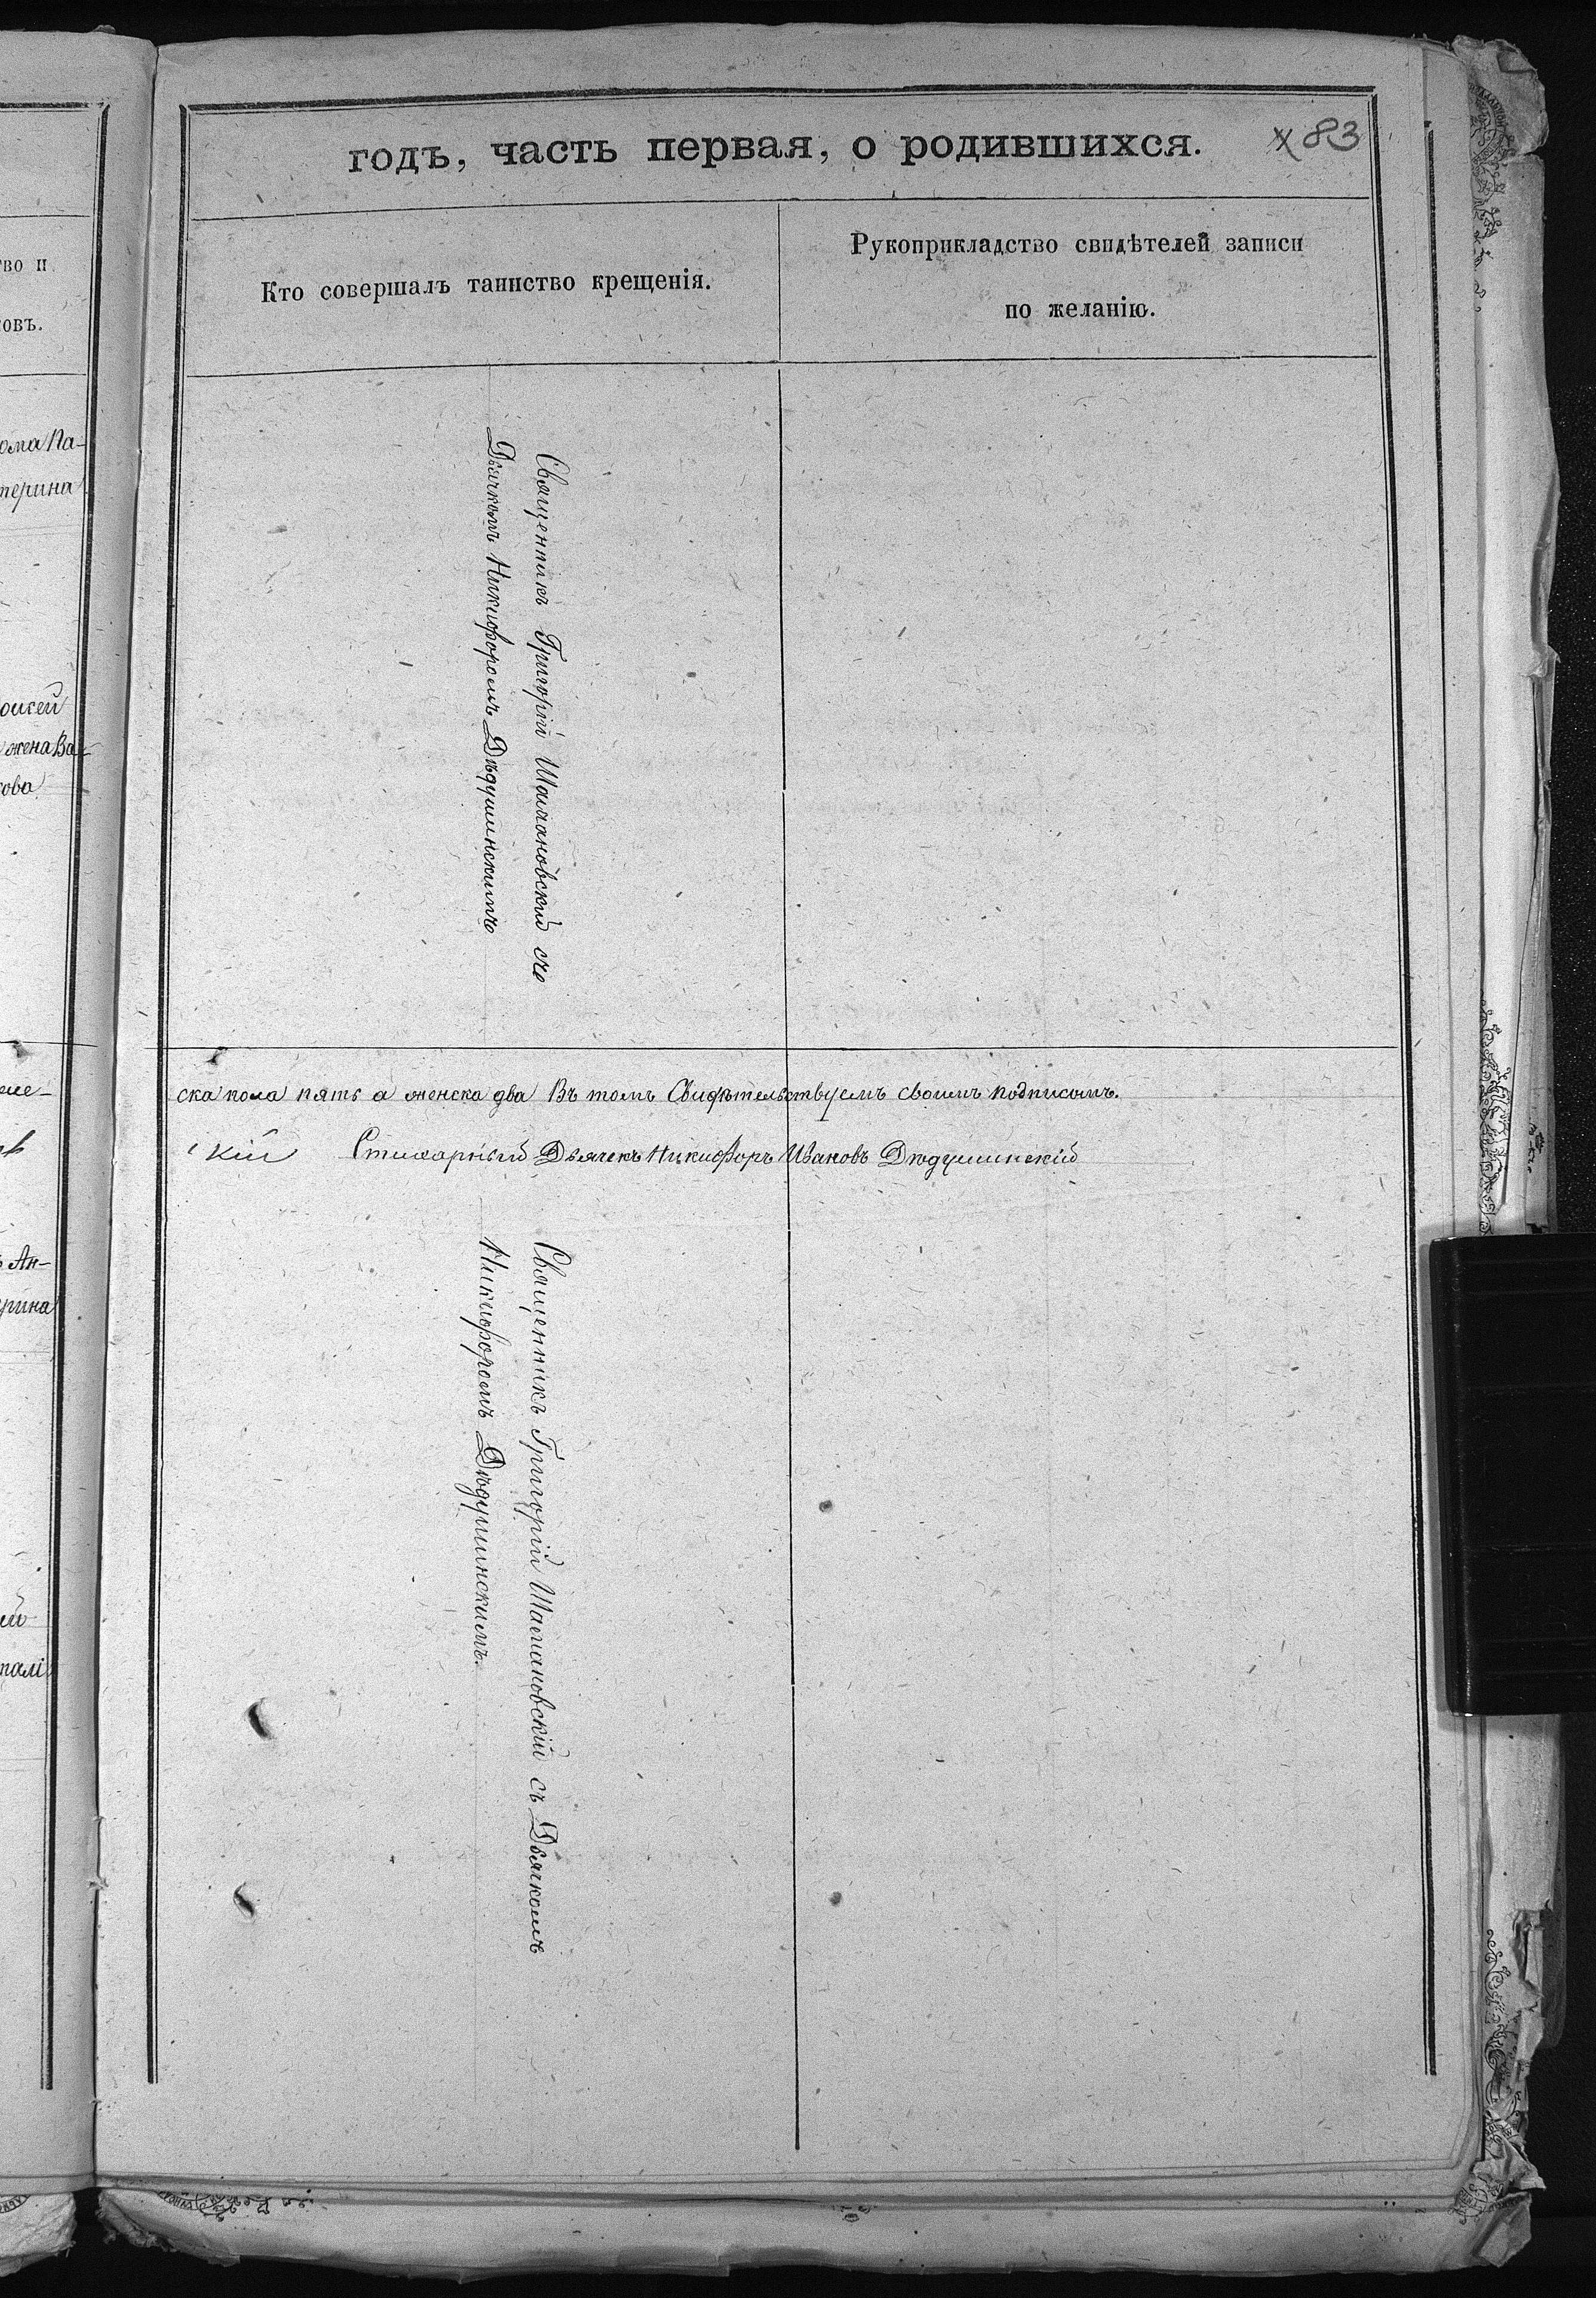 годъ, часть первая, о родившихся.
83
Кто совершалъ таинство крещенія.
Рукоприкладство свидѣтелей записи
по желанію.
Священникъ Григорій Шамановскій съ
Дьячкомъ Никифоромъ Дюдушинскимъ
ска пола пять а женска два Въ томъ Свидѣтельствуемъ своимъ подписомъ.
кій Стихарный Дьячекъ Никифоръ Ивановъ Дюдушинскій
Священникъ Григорій Шамановскій съ Дьячкомъ
Никифоромъ Дюдушинскимъ.
во и
овъ.
ома Па-
терина
жена Ва
ова
ме-
Ан-
рина
талі